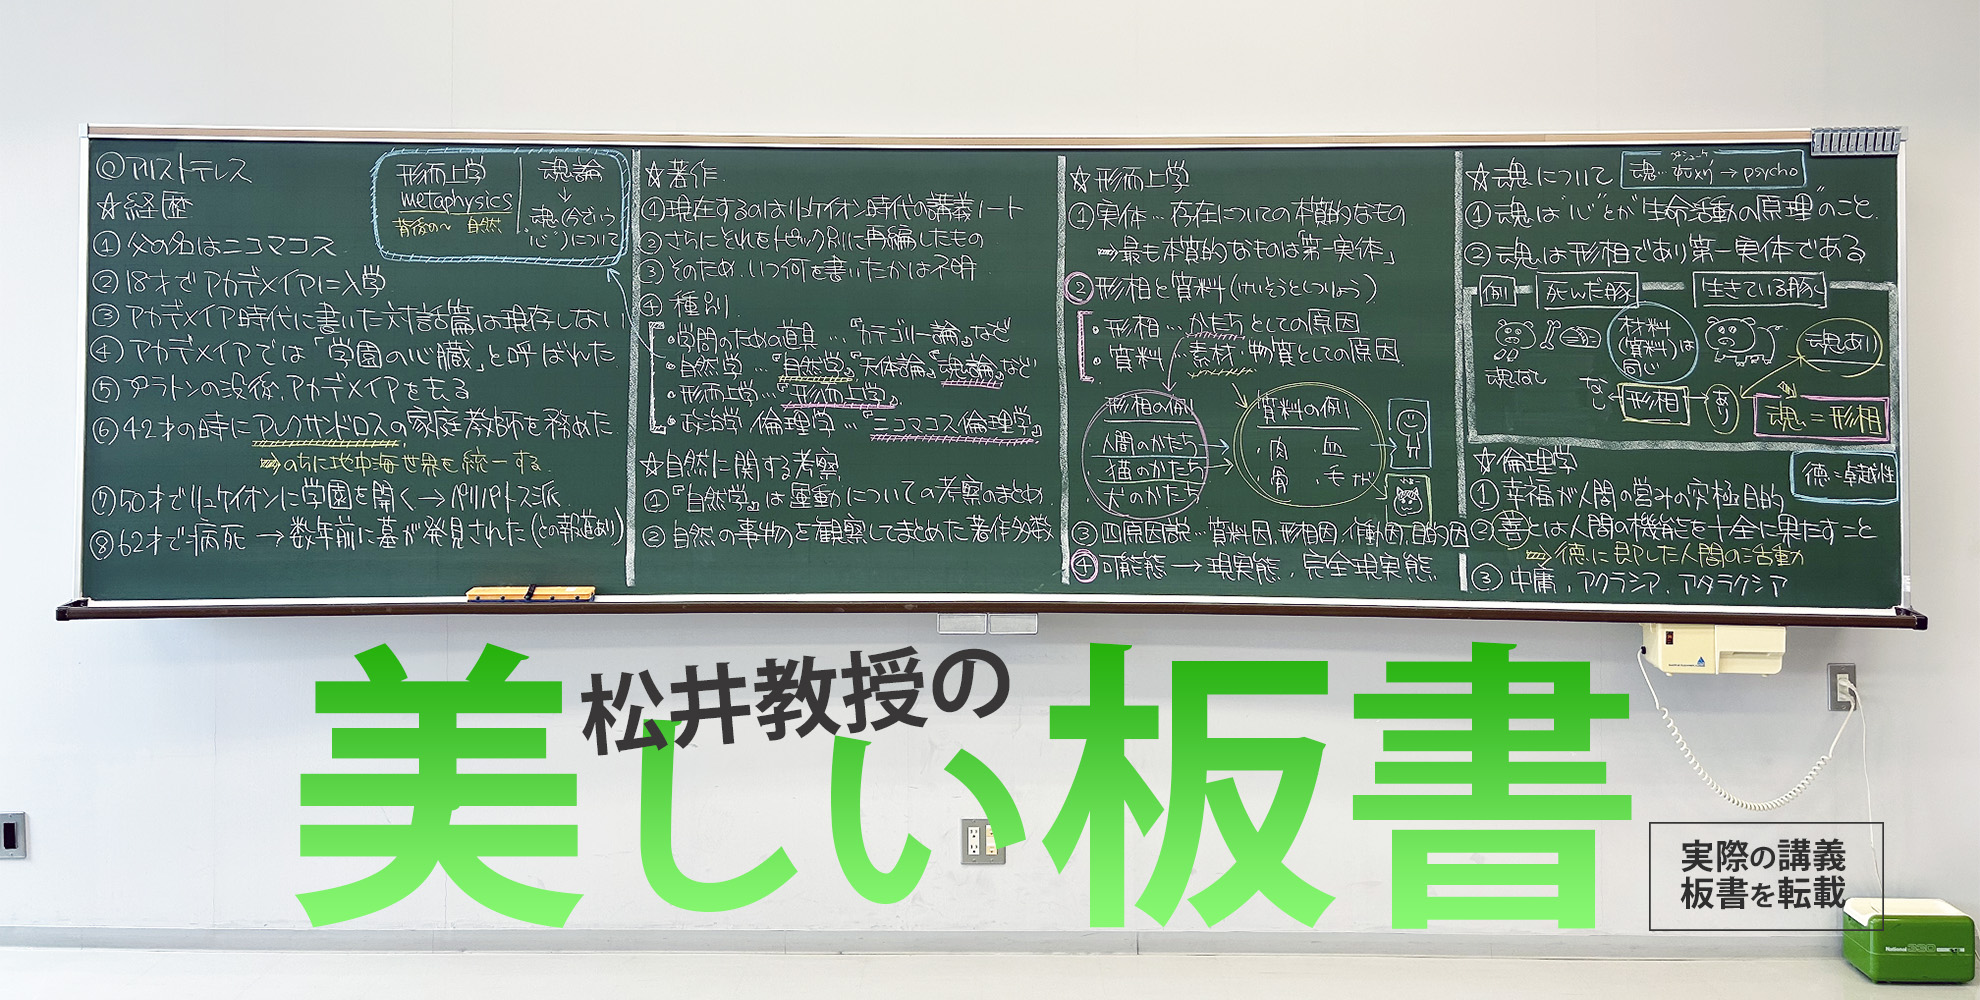 ◎アリストテレス
☆経歴
① 父の名はニコマコス
② 18才でアカデメイアに入学
③ アカデメイア時代に書いた対話篇は現存しない
④ アカデメイアでは「学園の心臓」と呼ばれた
⑤ プラトンの没後、アカデメイアを去る
⑥ 42才の時にアレクサンドロスの家庭教師を務めた
⇒のちに地中海世界を統一する
⑦ 50才でリュケイオンに学園を開く→ペリパトス派
⑧ 62才で病死→数年前に墓が発見された(との報道あり)
形而上学
metaphysics
背後の〜 自然
魂論
↓
魂(今でいう
"心")について
☆著作
① 現在するのはリュケイオン時代の講義ノート
② さらにそれをトピック別に再編したもの
③ そのため、いつ何を書いたかは不明
④ 種別
・学問のための道具…『カテゴリー論』など
・自然学…『自然学』『天体論』『魂論』など
・形而上学…『形而上学』
・政治学/倫理学…『ニコマコス倫理学』
☆自然に関する考察
① 『自然学』は運動についての考察のまとめ
② 自然の事物を観察してまとめた著作多数
☆形而上学
① 実体…存在についての本質的なもの
⇒最も本質的なものは「第一実体」
② 形相と質料(けいそうとしつりょう)
・形相…かたちとしての原因
・質料…素材・物質としての原因
形相の例
人間のかたち
猫のかたち
犬のかたち
質料の例
・肉 ・皿
・骨 ・毛 など
③ 四原因説…質料因、形相因、作動因、目的因
④ 可能態→現実態、完全現実態
☆魂について
プシューケー
魂…ψυχή→psycho
① 魂は"心"とか"生命活動の原理"のこと
② 魂は形相であり第一実体である
例 死んだ豚 生きている豚
材料
(質料)は
同じ
魂なし
魂あり
なし←形相→あり
魂=形相
☆倫理学
徳=卓越性
① 幸福が人間の営みの究極目的
② 善とは人間の機能を十全に果たすこと
⇒徳に即した人間の活動
③ 中庸、アクラシア、アタラクシア
松井教授の
美しい板書
実際の講義
板書を転載
National 330